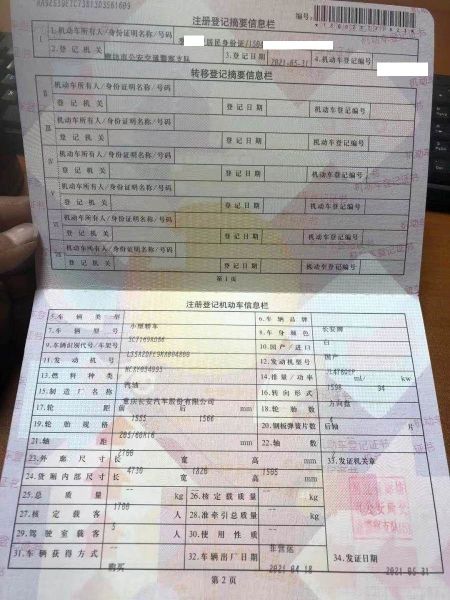 注册登记摘要信息栏
编号:
1.机动车所有人/身份证明名称/号码 居民身份证/
2.登记机关 廊坊市公安交通警察支队 3.登记日期 2021-05-31 4.机动车登记编号
转移登记摘要信息栏
II 机动车所有人/身份证明名称/号码
登记机关 登记日期 机动车登记编号
III 机动车所有人/身份证明名称/号码
登记机关 登记日期 机动车登记编号
机动车所有人/身份证明名称/号码
登记机关 登记日期 机动车登记编号
V 机动车所有人/身份证明名称/号码
登记机关 登记日期 机动车登记编号
机动车所有人/身份证明名称/号码
登记机关 登记日期 机动车登记编号
机动车所有人/身份证明名称/号码
登记机关 登记日期 机动车登记编号
第1页
注册登记机动车信息栏
5.车辆类型 小型轿车 6.车辆品牌 长安牌
7.车辆型号 8.车身颜色 白
9.车辆识别代号/车架号 10.国产/进口 国产
11.发动机号 12.发动机型号
13.燃料种类 汽油 14.排量/功率 1598 ml/ 94 kw
15.制造厂名称 重庆长安汽车股份有限公司 16.转向形式 方向盘
17.轮距 前 1555 后 1566 mm 18.轮胎数 4
19.轮胎规格 205/60R16 20.钢板弹簧片数 后轴 片
21.轴距 2700 mm 22.轴数
23.外廓尺寸 长 4730 宽 1820 高 1505 mm 33.发证机关章
24.货厢内部尺寸 长 -- 宽 -- 高 -- mm
25.总质量 1700 kg 26.核定载质量 -- kg
27.核定载客 5 人 28.准牵引总质量 -- kg
29.驾驶室载客 -- 人 30.使用性质 非营运
31.车辆获得方式 购买 32.车辆出厂日期 2021-04-18 34.发证日期 2021-05-31
第2页